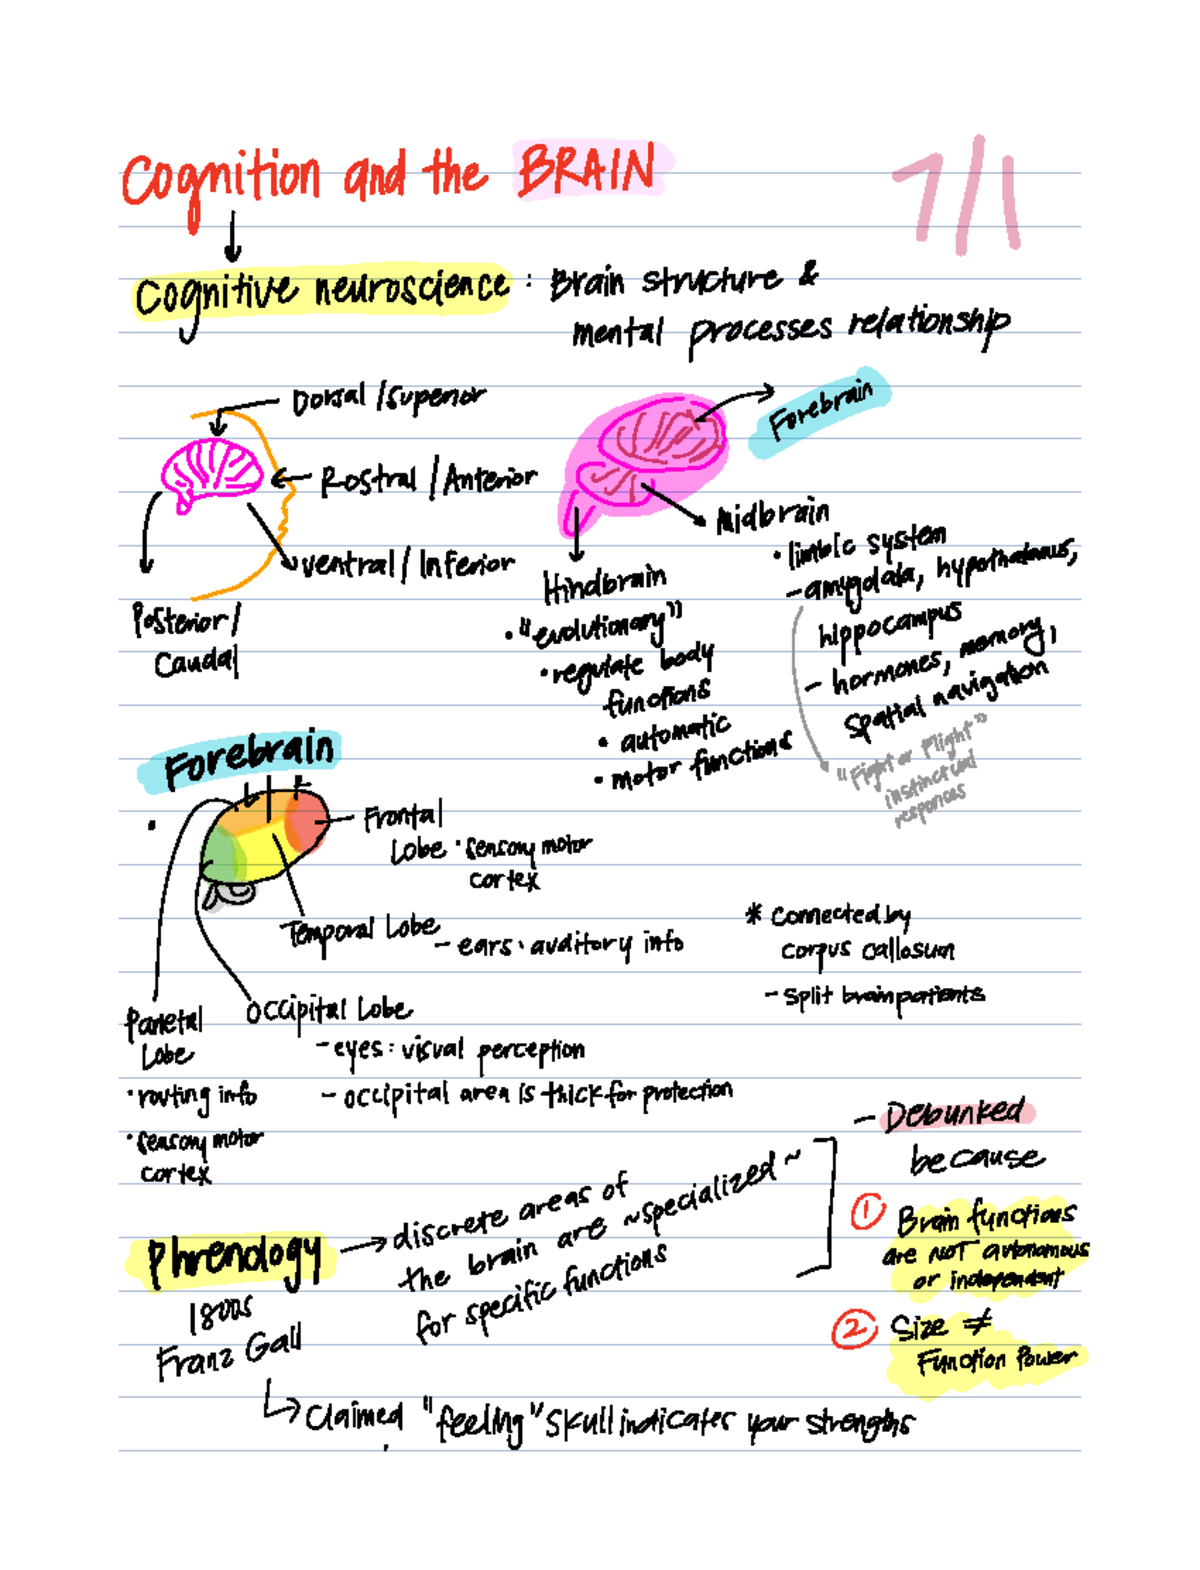 Cognition and the BRAIN
7/1
Cognitive neuroscience : Brain structure &
mental processes relationship
Dorsal / Superior
Rostral / Anterior
Ventral / Inferior
Posterior /
Caudal
Forebrain
Midbrain
• limbic system
- amygdala, hypothalamus,
hippocampus
- hormones, memory,
spatial navigation
"Fight or Flight"
instinctual
responses
Hindbrain
• "evolutionary"
• regulate body
functions
• automatic
• motor functions
Forebrain
•
Frontal
Lobe • sensory motor
cortex
Temporal Lobe
- ears : auditory info
Occipital Lobe
- eyes : visual perception
- occipital area is thick for protection
Parietal
Lobe
• routing info
• sensory motor
cortex
* Connected by
corpus callosum
- split brain patients
Phrenology → discrete areas of
the brain are ~specialized~
for specific functions
1800s
Franz Gall
↳ Claimed "feeling" skull indicates your strengths
- Debunked
because
① Brain functions
are NOT autonomous
or independent
② Size ≠
Function Power